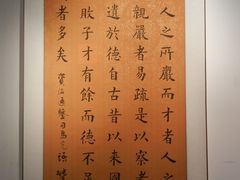 人之所嚴而才者人之
親嚴者易疏是以察者
遺於德自古昔以來國
敗子才有餘而德不足
者多矣 資治通鑒司馬光語